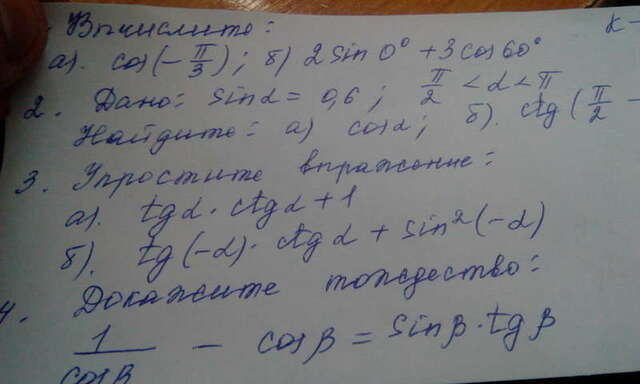 . Вычислите: К-
а). cos(-π/3); б) 2 sin 0° + 3 cos 60°
2. Дано: sin α = 0,6; π/2 < α < π
Найдите: а) cos α; б). ctg (π/2 -
3. Упростите выражение:
а). tg α · ctg α + 1
б). tg (-α) · ctg α + sin² (-α)
4. Докажите тождество:
1/cos β - cos β = sin β · tg β